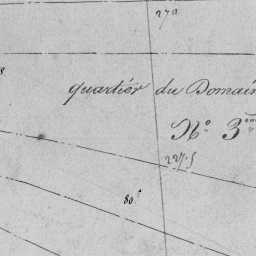 270
8
quartier du Domain
N.º 3.me
227.5
80